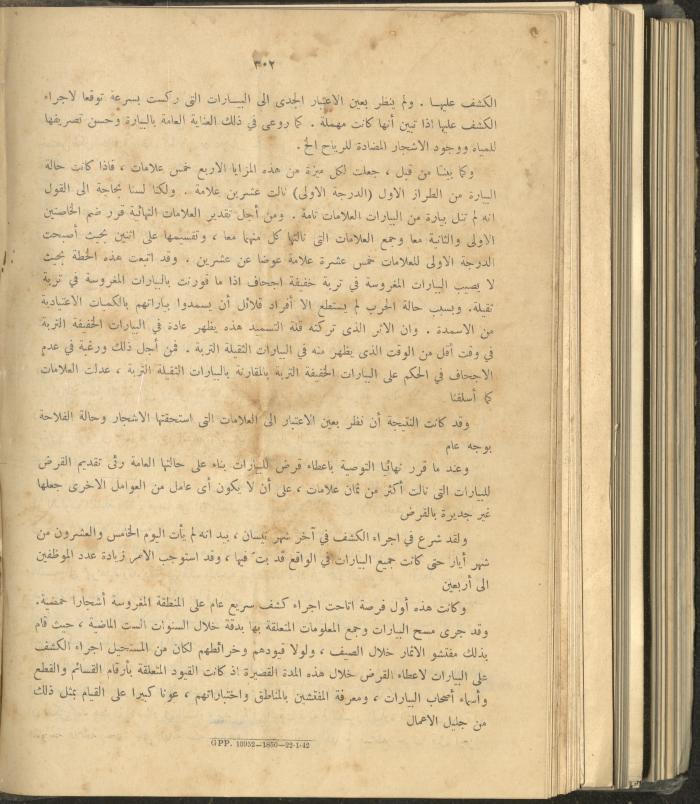 ٣٠٢
الكشف عليها . ولم ينظر بعين الاعتبار الجدى الى البيارات التى ركست بسرعة توقعا لاجراء
الكشف عليها اذا تبين أنها كانت مهملة . كما روعى في ذلك العناية العامة بالبيارة وحسن تصريفها
للمياه ووجود الاشجار المضادة للرياح الخ .
وكما بينا من قبل ، جعلت لكل ميزة من هذه المزايا الاربع خمس علامات ، فاذا كانت حالة
البيارة من الطراز الاول (الدرجة الاولى) نالت عشرين علامة . ولكنا لسنا بحاجة الى القول
انه لم تنل بيارة من البيارات العلامات تامة . ومن أجل تقدير العلامات النهائية قرر ضم الخاصتين
الاولى والثانية معا وجمع العلامات التى نالتها كل منهما معا ، وتقسيمها على اثنين بحيث أصبحت
الدرجة الاولى للعلامات خمس عشرة علامة عوضا عن عشرين . وقد اتبعت هذه الخطة بحيث
لا يصيب البيارات المغروسة في تربة خفيفة اجحاف اذا ما قورنت بالبيارات المغروسة في تربة
ثقيلة. وبسبب حالة الحرب لم يستطع الا أفراد قلائل أن يسمدوا بياراتهم بالكميات الاعتيادية
من الاسمدة . وان الاثر الذى تركته قلة التسميد هذه يظهر عادة في البيارات الخفيفة التربة
في وقت أقل من الوقت الذى يظهر منه في البيارات الثقيلة التربة . فمن أجل ذلك ورغبة في عدم
الاجحاف في الحكم على البيارات الخفيفة التربة بالمقارنة بالبيارات الثقيلة التربة ، عدلت العلامات
كما أسلفنا
وقد كانت النتيجة أن نظر بعين الاعتبار الى العلامات التى استحقتها الاشجار وحالة الفلاحة
بوجه عام
وعند ما قرر نهائيا التوصية باعطاء قرض للبيارات بناء على حالتها العامة رئى تقديم القرض
للبيارات التى نالت أكثر من ثمان علامات ، على أن لا يكون أى عامل من العوامل الاخرى جعلها
غير جديرة بالقرض
ولقد شرع في اجراء الكشف في آخر شهر نيسان ، بيد انه لم يأت اليوم الخامس والعشرون من
شهر أيار حتى كانت جميع البيارات في الواقع قد بت فيها ، وقد استوجب الامر زيادة عدد الموظفين
الى أربعين
وكانت هذه أول فرصة اتاحت اجراء كشف سريع عام على المنطقة المغروسة أشجارا حمضية.
وقد جرى مسح البيارات وجمع المعلومات المتعلقة بها بدقة خلال السنوات الست الماضية ، حيث قام
بذلك مفتشو الاثمار خلال الصيف ، ولولا قيودهم وخرائطهم لكان من المستحيل اجراء الكشف
على البيارات لاعطاء القرض خلال هذه المدة القصيرة اذ كانت القيود المتعلقة بأرقام القسائم والقطع
وأسماء أصحاب البيارات ، ومعرفة المفتشين بالمناطق واختباراتهم ، عونا كبيرا على القيام بمثل ذلك
من جليل الاعمال
GPP. 10952—1850—22-1-42